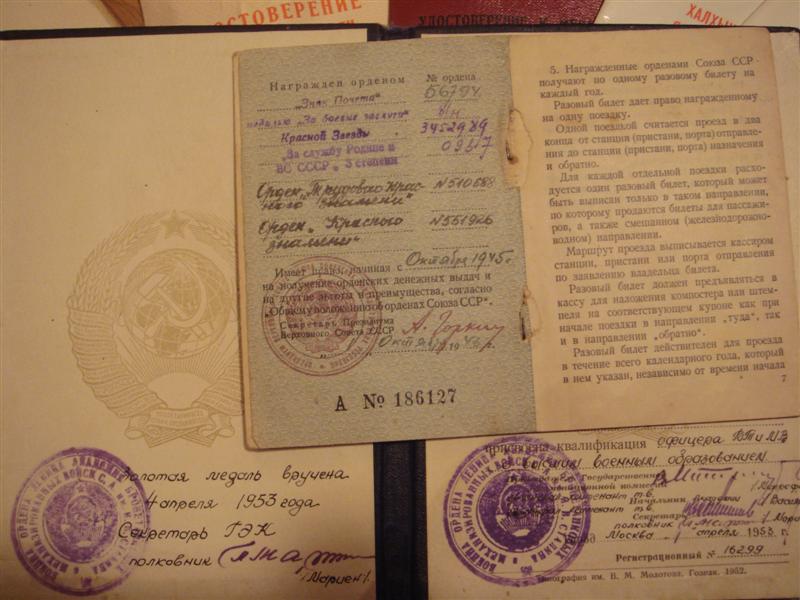 УДОСТОВЕРЕНИЕ
УДОСТОВЕРЕНИЕ К МЕ
ХАЛХИ
Награжден орденом
№ ордена
„Знак Почета"
56794
медалью „За боевые заслуги"
б/н
Красной Звезды
3452989
„За службу Родине в
ВС СССР" 3 степени
Орден „Трудового Крас-
ного Знамени"
№510688
Орден „Красного
знамени"
№551926
Имеет право, начиная с Октября 1945 г.
на получение орденских денежных выдач и
на другие льготы и преимущества, согласно
„Общему положению об орденах Союза ССР".
Секретарь Президиума
Верховного Совета СССР
А. Горкин
А № 186127
5. Награжденные орденами Союза ССР
получают по одному разовому билету на
каждый год.
Разовый билет дает право награжденному
на одну поездку.
Одной поездкой считается проезд в два
конца от станции (пристани, порта) отправле-
ния до станции (пристани, порта) назначения
и обратно.
Для каждой отдельной поездки расхо-
дуется один разовый билет, который может
быть выписан только в таком направлении,
по которому продаются билеты для пассажи-
ров, а также смешанном (железнодорожно-
водном) направлении.
Маршрут проезда выписывается кассиром
станции, пристани или порта отправления
по заявлению владельца билета.
Разовый билет должен предъявляться в
кассу для наложения компостера или штем-
пеля на соответствующем купоне как при
начале поездки в направлении „туда", так
и в направлении „обратно".
Разовый билет действителен для проезда
в течение всего календарного года, который
в нем указан, независимо от времени начала
7
Золотая медаль вручена
4 апреля 1953 года
Секретарь ГЭК
полковник
(Мариен)
присвоена квалификация офицера БТ и МВ
с высшим военным образованием
Государственной
комиссии
лейтенант т.в.
Начальник академии
лейтенант т.в.
Секретарь
полковник
Город Москва апреля 1953 г.
Регистрационный № 16299
Типография им. В. М. Молотова. Гознак. 1952.